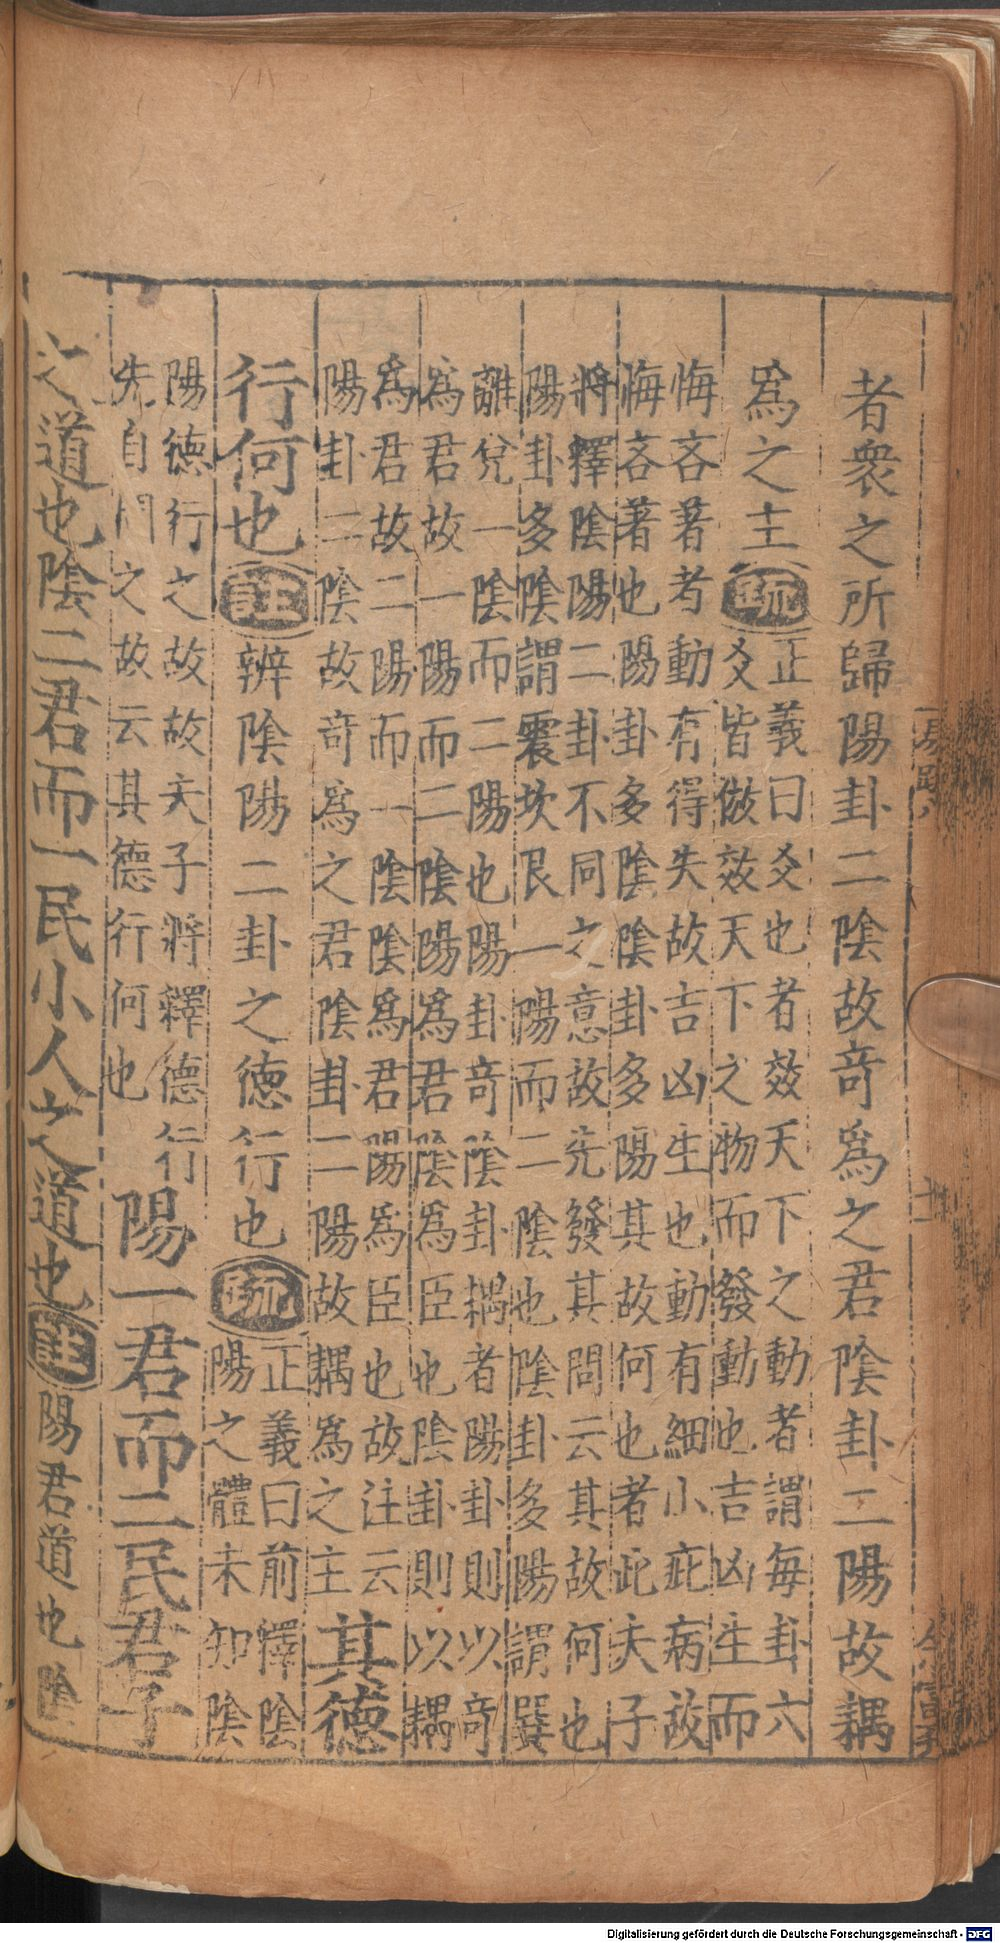 者衆之所歸陽卦二陰故竒爲之君陰卦二陽故耦
爲之主疏正義曰爻也者效天下之動者謂毎卦六
爻皆倣效天下之物而發動也吉凶生而
悔吝著者動有得失故吉凶生也動有細小疵病故
悔吝著也陽卦多陰陰卦多陽其故何也者此夫子
將釋陰陽二卦不同之意故先發其問云其故何也
陽卦多陰謂震坎艮一陽而二陰也陰卦多陽謂巽
離兌一陰而二陽也陽卦竒陰卦耦者陽卦則以竒
爲君故一陽而二陰陽爲君陰爲臣也陰卦則以耦
爲君故二陽而一陰陰爲君陽爲臣也故注云
陽卦二陰故竒爲之君陰卦二陽故耦爲之主其德
行何也註辨陰陽二卦之德行也疏正義曰前釋陰
陽之體未知陰
陽德行之故故夫子將釋德行
先自問之故云其德行何也陽一君而二民君子
之道也陰二君而一民小人之道也註陽君道也陰
Digitalisierung gefördert durch die Deutsche Forschungsgemeinschaft - DFG